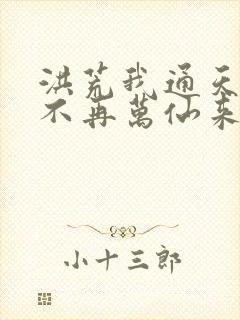 洪荒我通天
不再萬仙來
小十三郎